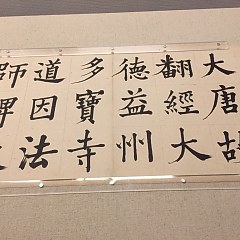 大唐故
翻經大
德益州
多寶寺
道因法
師碑